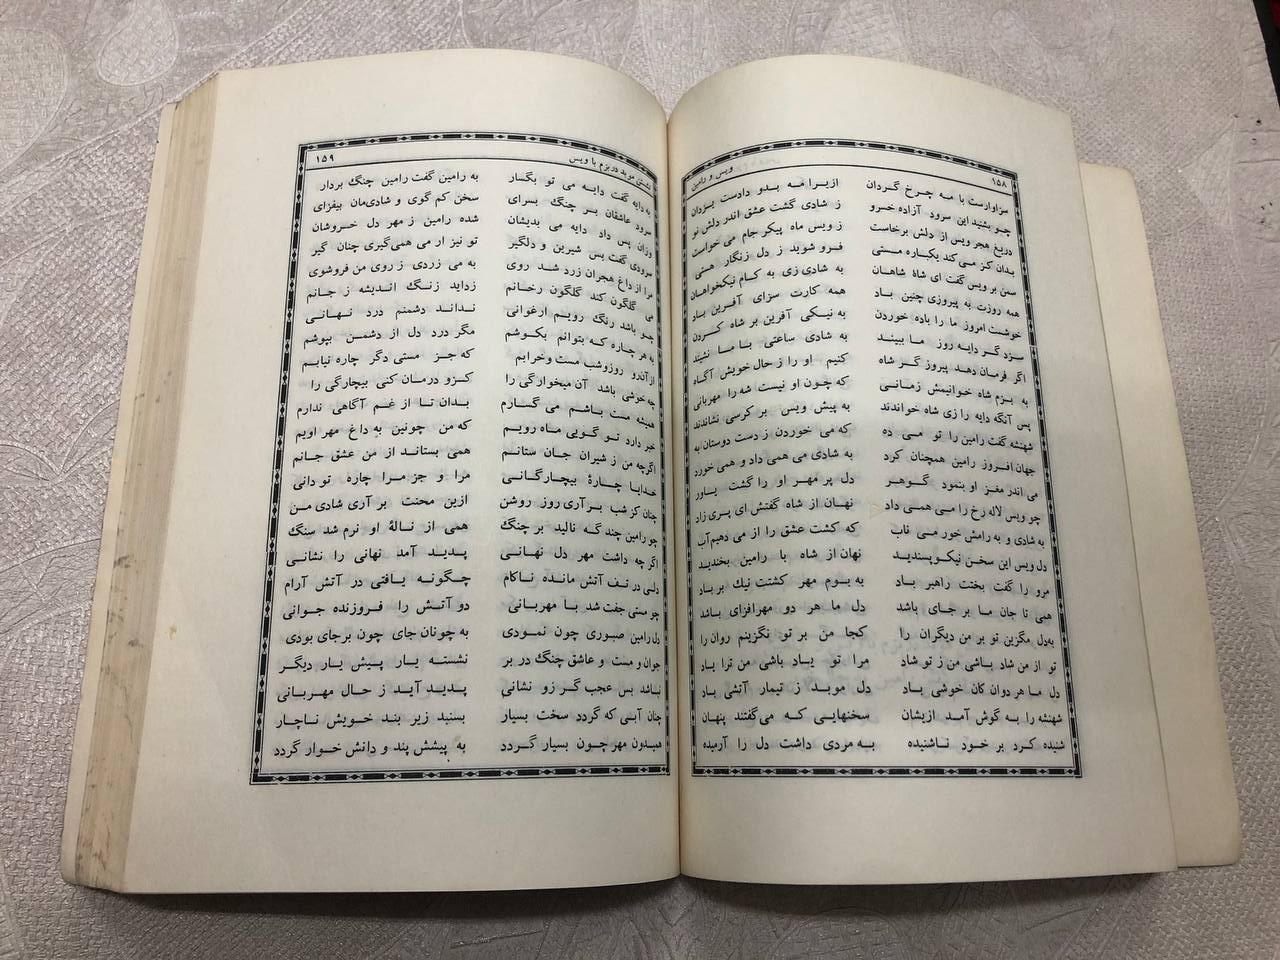 ۱۵۸ ویس و رامین
سزاوارست با مه چرخ گردان ازیرا مه بدو دادست یزدان
چو بشنید این سرود آزاده خسرو ز شادی گشت عشق اندر دلش نو
دریغ هجر ویس از دلش برخاست ز ویس ماه پیکر جام می خواست
بدان کز می کند یکباره مستی فرو شوید ز دل زنگار هستی
سمن بر ویس گفت ای شاه شاهان به شادی زی به کام نیکخواهان
همه روزت به پیروزی چنین باد همه کارت سزای آفرین باد
خوشست امروز ما را باده خوردن به نیکی آفرین بر شاه کردن
سزد گر دایه روز ما ببیند به شادی ساعتی با ما نشیند
اگر فرمان دهد پیروز گر شاه کنیم او را ز حال خویش آگاه
به بزم شاه خوانیمش زمانی که چون او نیست شه را مهربانی
پس آنگه دایه را زی شاه خواندند به پیش ویس بر کرسی نشاندند
شهنشه گفت رامین را تو می ده که می خوردن ز دست دوستان به
جهان افروز رامین همچنان کرد به شادی می همی داد و همی خورد
می اندر مغز او بنمود گوهر دل پر مهر او را گشت یاور
چو ویس لاله رخ را می همی داد نهان از شاه گفتش ای پری زاد
به شادی و به رامش خور می ناب که کشت عشق را از می دهیم‌آب
دل ویس این سخن نیکو پسندید نهان از شاه با رامین بخندید
مرو را گفت بختت راهبر باد به بوم مهر کشتت نیک بر باد
همی تا جان ما بر جای باشد دل ما هر دو مهرافزای باشد
به‌دل مگزین تو بر من دیگران را کجا من بر تو نگزینم روان را
تو از من شاد باشی من ز تو شاد مرا تو یاد باشی من ترا یاد
دل ما هر دوان کان خوشی باد دل موبد ز تیمار آتشی باد
شهنشه را به گوش آمد ازیشان سخنهایی که می‌گفتند پنهان
شنیده کرد بر خود ناشنیده به مردی داشت دل را آرمیده
نشستن موبد در بزم با ویس ۱۵۹
به دایه گفت دایه می تو بگسار به رامین گفت رامین چنگ بردار
سرود عاشقان بر چنگ بسرای سخن کم گوی و شادی‌مان بیفزای
وزان پس داد دایه می بدیشان شده رامین ز مهر دل خروشان
سرودی گفت بس شیرین و دلگیر تو نیز ار می همی‌گیری چنان گیر
مرا از داغ هجران زرد شد روی به می زردی ز روی من فروشوی
می گلگون کند گلگون رخانم زداید زنگ اندیشه ز جانم
چو باشد رنگ رویم ارغوانی نداند دشمنم درد نهانی
به هر چاره که بتوانم بکوشم مگر درد دل از دشمن بپوشم
از آن‌رو روزوشب مست وخرابم که جز مستی دگر چاره نیابم
چه خوشی باشد آن میخوارگی را کزو درمان کنی بیچارگی را
همیشه مست باشم می گسارم بدان تا از غم آگاهی ندارم
خبر دارد تو گویی ماه رویم که من چونین به داغ مهر اویم
اگرچه من ز شیران جان ستانم همی بستاند از من عشق جانم
خدایا چارهٔ بیچارگانی مرا و جز مرا چاره تو دانی
چنان کز شب بر آری روز روشن ازین محنت بر آری شادی من
چو رامین چند گه نالید بر چنگ همی از نالهٔ او نرم شد سنگ
اگر چه داشت مهر دل نهانی پدید آمد نهانی را نشانی
دلی در تف آتش مانده ناکام چگونه یافتی در آتش آرام
چو مستی جفت شد با مهربانی دو آتش را فروزنده جوانی
دل رامین صبوری چون نمودی به چونان جای چون برجای بودی
جوان و مست و عاشق چنگ در بر نشسته یار پیش یار دیگر
نباشد بس عجب گر زو نشانی پدید آید ز حال مهربانی
چنان آبی که گردد سخت بسیار بسنبد زیر بند خویش ناچار
همیدون مهر چون بسیار گردد به پیشش پند و دانش خوار گردد